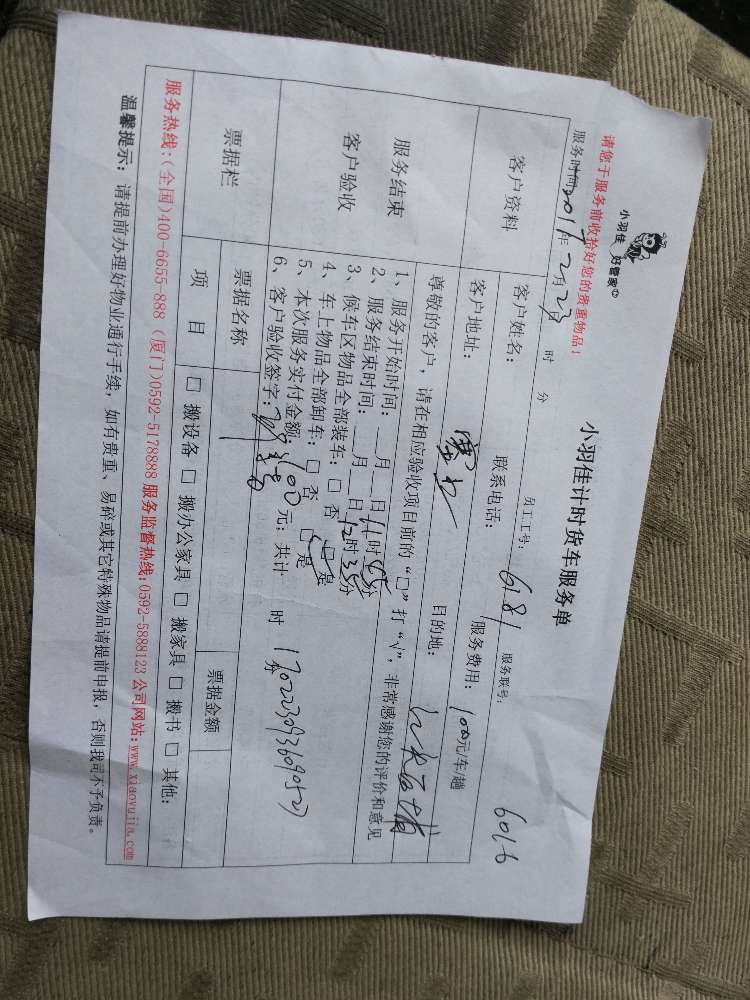 小羽佳 好管家
小羽佳计时货车服务单
请您于服务前收拾好您的贵重物品!
服务时间2017年2月23日 时 分 员工工号: 6181 服务联号: 6016
客户资料
客户姓名: 联系电话: 服务费用: 100元/车/趟
客户地址: 目的地:
服务结束
客户验收
尊敬的客户,请在相应验收项目前的“□”打“√”,非常感谢您的评价和意见
1、服务开始时间: 月 日11时 分
2、服务结束时间: 月 日12时35分
3、候车区物品全部装车: □ 否 □ 是
4、车上物品全部卸车: □ 否 □ 是
5、本次服务实付金额: 100 元; 共计 时
6、客户验收签字:
券170223093609527
票据栏 票据名称 票据金额
项 目 □ 搬设备 □ 搬办公家具 □ 搬家具 □ 搬书 □ 其他:
服务热线:(全国)400-6655-888 (厦门)0592-5178888 服务监督热线:0592-5888123 公司网站:www.xiaoyujia.com
温馨提示: 请提前办理好物业通行手续, 如有贵重、易碎或其它特殊物品请提前申报, 否则我司不予负责。